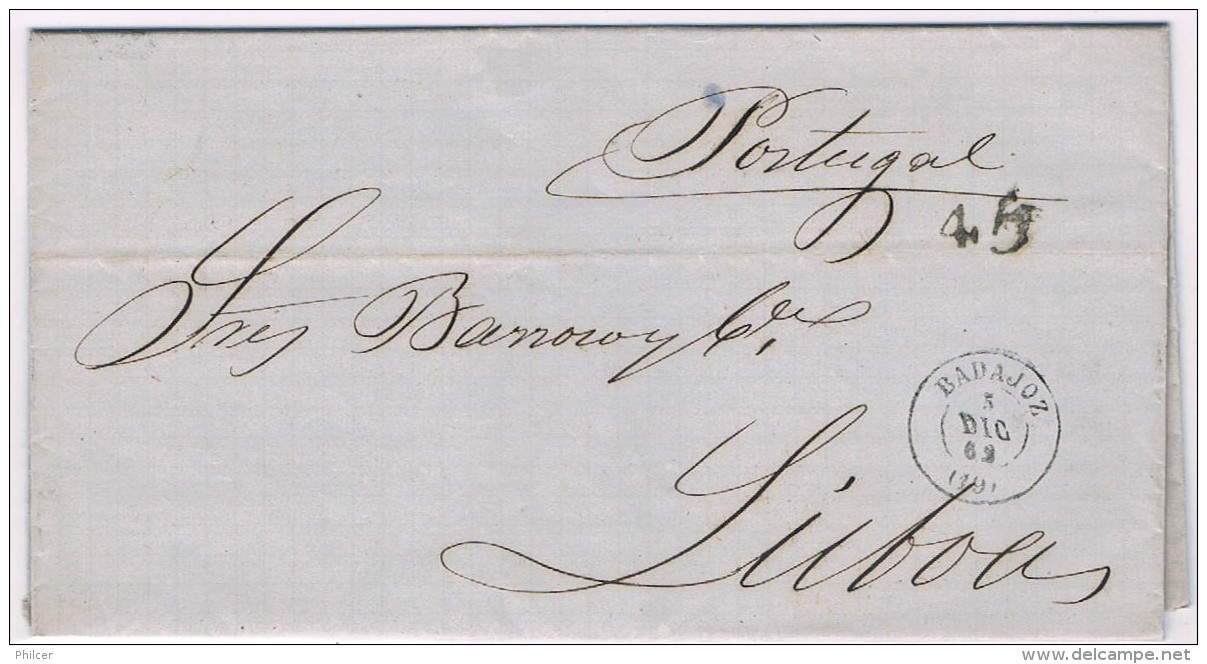 Portugal
45
Sres Barrow y Cia
BADAJOZ
5
DIC
62
(19)
Lisboa
Philcer
www.delcampe.net